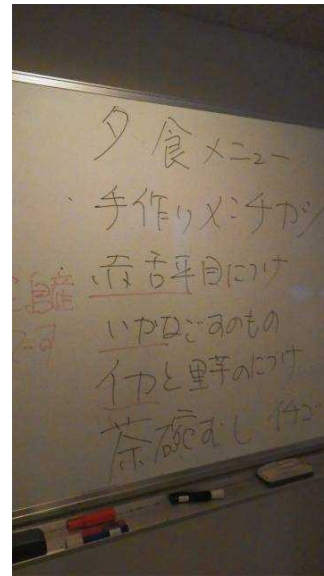 夕食メニュー
手作りメンチカツ
赤舌平目につけ
いかなごすのもの
イカと里芋のにつけ
茶碗むし イチゴ
島産